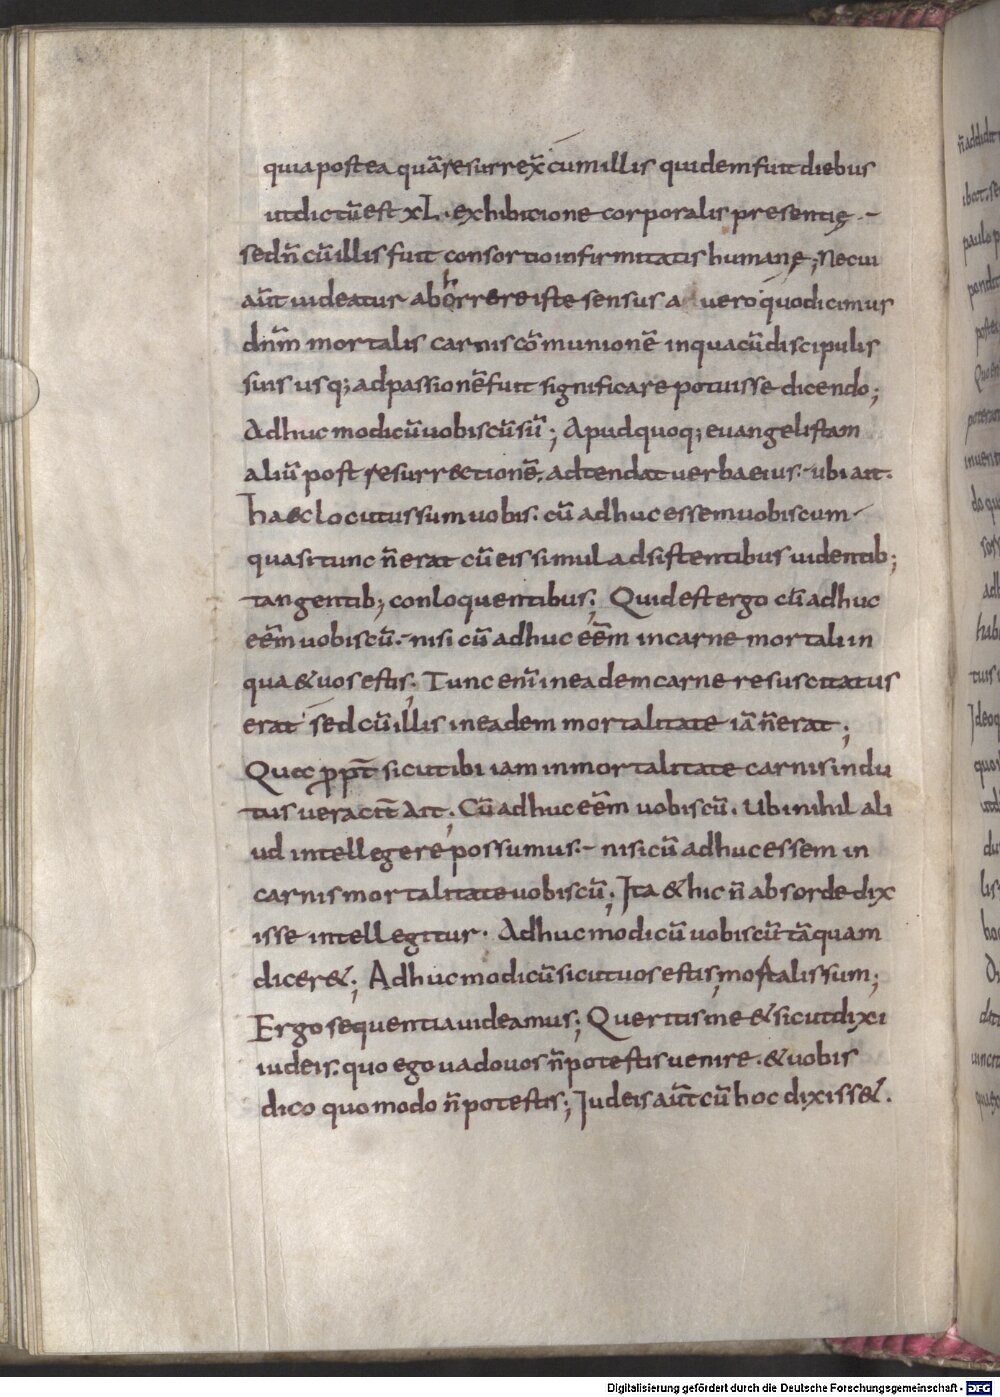 quia postea quā resurrex̄ cum illis quidem fuit diebus
ut dictū est XL. exhibitione corporalis presentię.
sed n̄ cū illis fuit consortio infirmitatis humanę; Ne cui
aūt uideatur abhorrere iste sensus a uero quo dicimus
dnm̄ mortalis carnis cōmunionē in qua cū discipulis
suis usq; ad passionē fuit significare potuisse dicendo;
Adhuc modicū uobiscū sū; Apud quoq; euangelistam
aliū post resurrectionē. adtendat uerba eius. ubi ait.
Haec locutus sum uobis. cū adhuc essem uobiscum
quasi tunc n̄ erat cū eis simul adsistentibus uidentib;
tangentib; conloquentibus; Quid est ergo cū adhuc
eēm uobiscū. nisi cū adhuc eēm in carne mortali in
qua & uos estis; Tunc enī in eadem carne resuscitatus
erat sed cū illis in eadem mortalitate iā n̄ erat;
Quec ꝓpt̄ sicut ibi iam inmortalitate carnis indu
tus ueracit̄ Ait; Cū adhuc eēm uobiscū. Ubi nihil ali
ud intellegere possumus. nisi cū adhuc essem in
carnis mortalitate uobiscū; Ita & hic n̄ absorde dix
isse intellegitur. Adhuc modicū uobiscū tāquam
dicer&; Adhuc modicū sicut uos estis mortalis sum;
Ergo sequentia uideamus; Queritis me & sicut dixi
iudeis. quo ego uado uos n̄ potestis uenire. & uobis
dico quo modo n̄ potestis; Iudeis aūt cū hoc dixiss&.
Digitalisierung gefördert durch die Deutsche Forschungsgemeinschaft - DFG